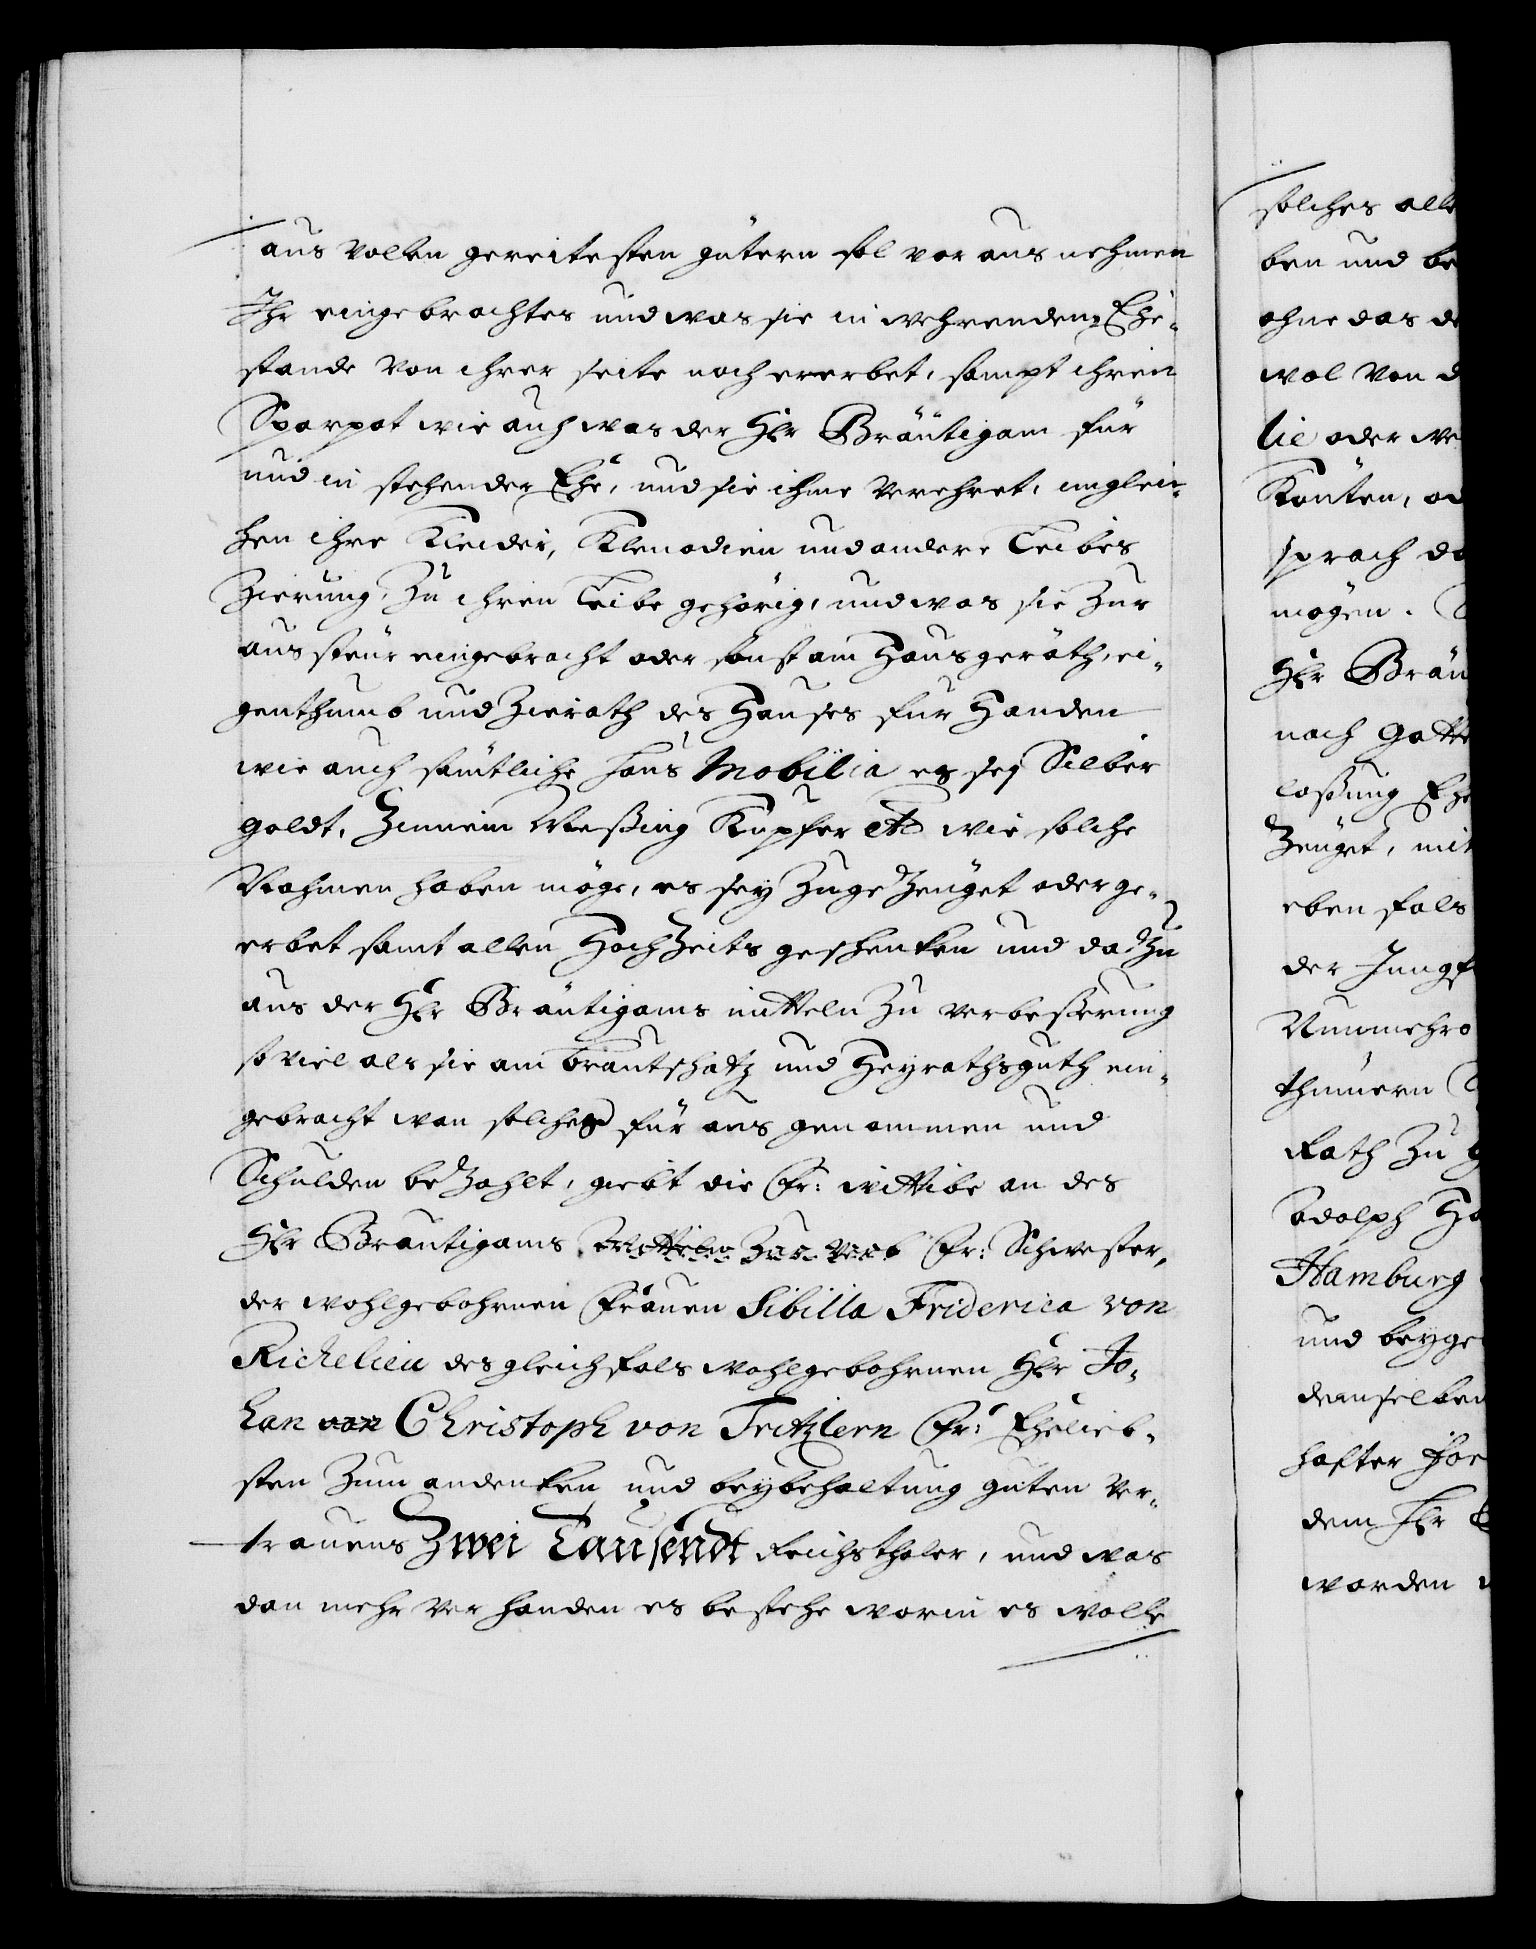 aus vollen gereitesten gütern sol vor aus nehmen
Ihr eingebrachtes und was sie in wehrendem Ehe-
stande von ihrer seite noch ererbet, sampt ihren
Sparpot wie auch was der Hr Bräutigam für
und in stehender Ehe, und sie ihme verehret, inglei-
hen ihre Kleider, Klenodien und andere Leibes
Zierung, zu ihren Leibe gehörig, und was sie zur
aussteur eingebracht oder sonst am Hausgeräth, ei-
genthumb und Zierath des Hauses fur Handen
wie auch sämtliche haus Mobilia es sej Silber
goldt, Zinnein Meßing Kupfer etc wie solche
Nahmen haben möge, es sey zuge zeuget oder ge-
erbet samt allen Hochzeits geschenken und dazu
aus der Hr Bräutigams mitteln zu verbeßerung
so viel als sie am brautschatz und Heyrathsguth ein-
gebracht wan solches für aus genommen und
Schulden bezahlt, giebt die Fr: wittibe an des
Hr Bräutigams Fr: Schwester,
der wohlgebohrnen Frauen Sibilla Friderica von
Richelieu des gleichfals wohlgebohrnen Hr Jo-
han von Christoph von Tritzlern Fr: Ehelieb-
sten zum andenken und beybehaltung guten ver-
trauens Zwei Tausendt Reichsthaler, und was
dan mehr verhanden es bestehe worin es wolle
solches alle
ben und be
ohne das de
wol von d
lie oder we
Könten, od
sprach da
mögen.
Hr Bräu
nach Gotte
laßung Ehe
Zeuget, mit
ebenfals
der Jungf
Nunmehro
thümern
Rath zu
Adolph Ha
Hamburg
und beyge
demselben
hafter
dem Hr
worden